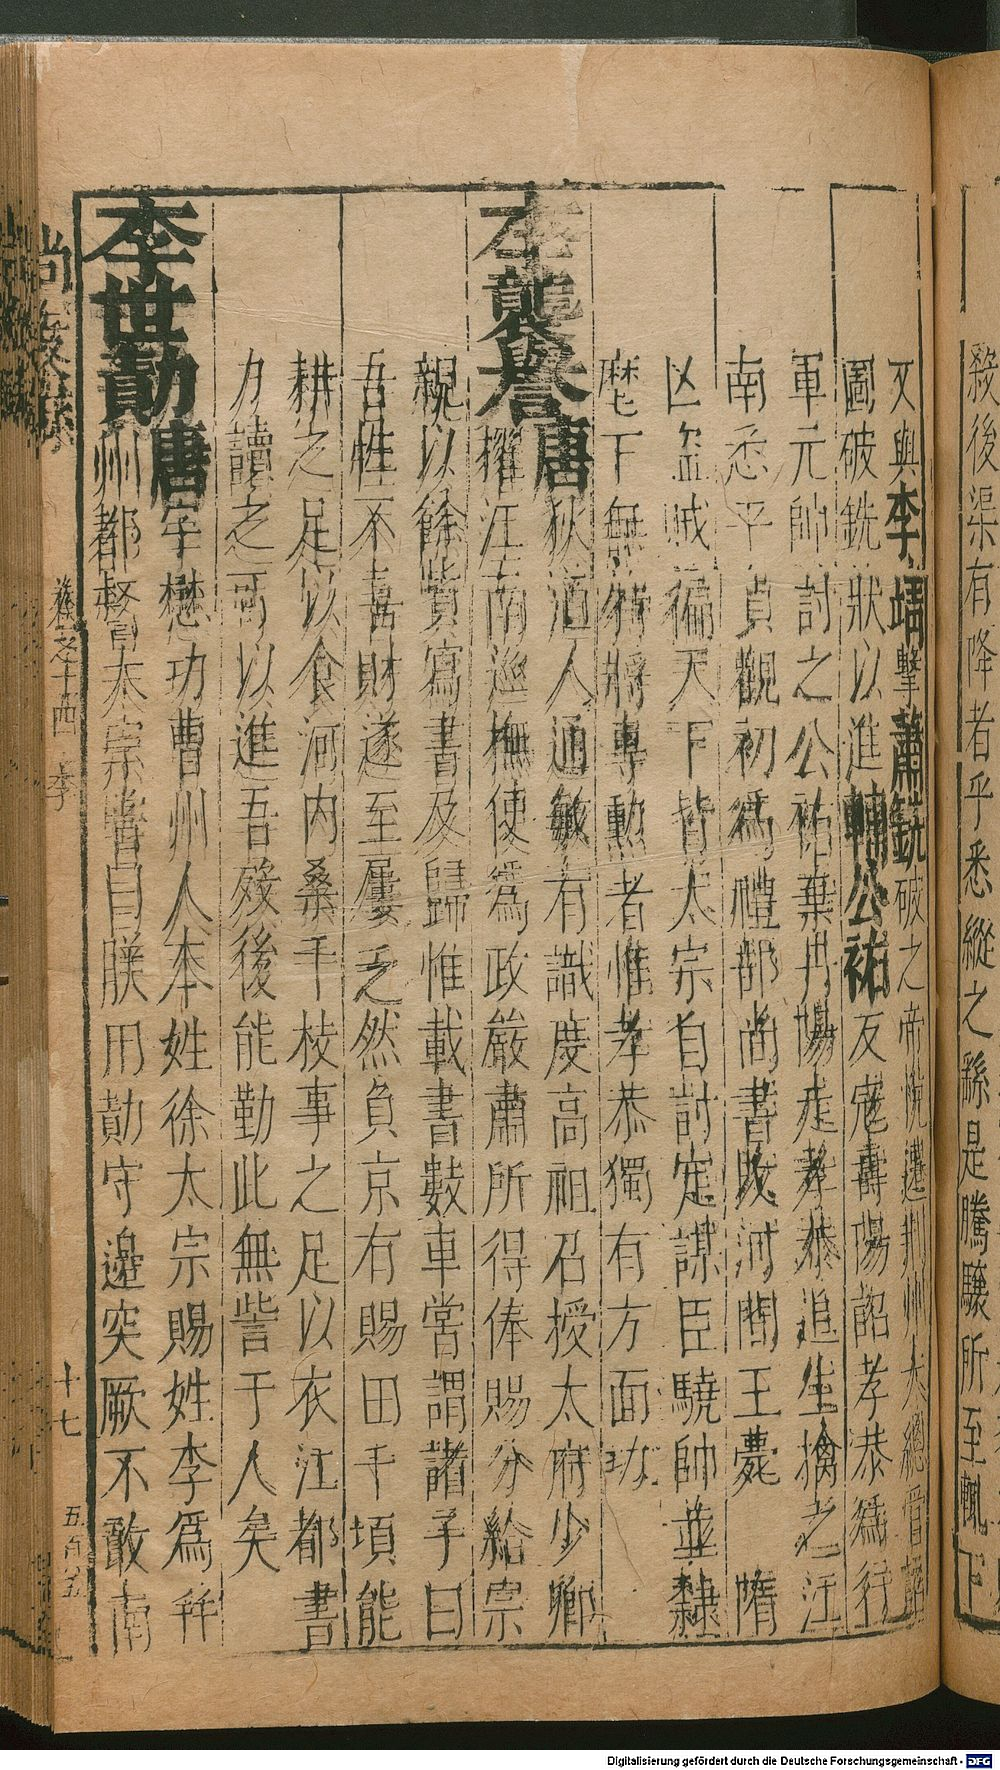 殺後渠有降者乎悉縱之繇是騰驤所至輒下
又與李靖擊蕭銑破之帝悅遷荆州大總管詔
圖破銑狀以進輔公祏反寇壽陽詔孝恭爲行
軍元帥討之公祏棄丹陽走孝恭追生擒之江
南悉平貞觀初爲禮部尚書改河間王薨 隋
亡盜賊徧天下皆太宗自討定謀臣驍帥並隸
麾下無特將專勲者惟孝恭獨有方面功
李襲譽唐狄道人通敏有識度高祖召授太府少卿
擢江南巡撫使爲政嚴肅所得俸賜分給宗
親以餘貲寫書及歸惟載書數車嘗謂諸子曰
吾性不喜財遂至屢乏然負京有賜田千頃能
耕之足以食河内桑千枝事之足以衣江都書
力讀之可以進吾殁後能勤此無訾于人矣
李世勣唐字懋功曹州人本姓徐太宗賜姓李爲幷
州都督太宗嘗曰朕用勣守邊突厥不敢南
尚友錄 卷之十四 李 十七 五百八五
Digitalisierung gefördert durch die Deutsche Forschungsgemeinschaft - DFG